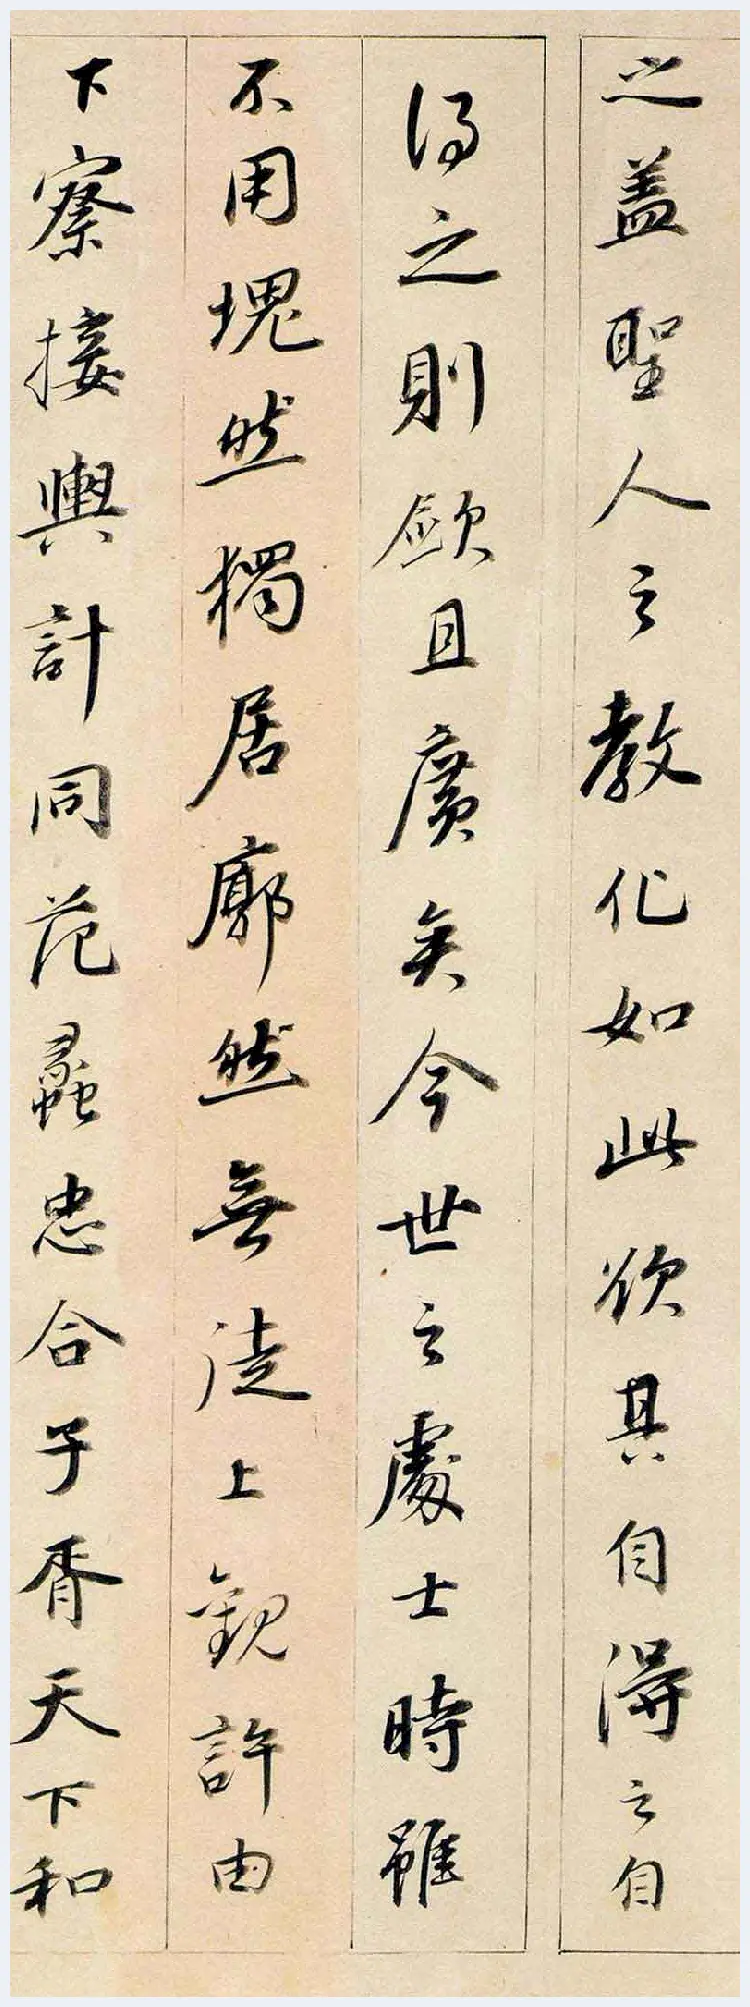 之蓋聖人之教化如此欲其自得之自
得之則敏且廣矣今世之處士時雖
不用塊然獨居廓然無徒上觀許由
下察接輿計同范蠡忠合子胥天下和